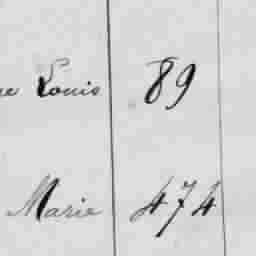 Louis 89
Marie 474